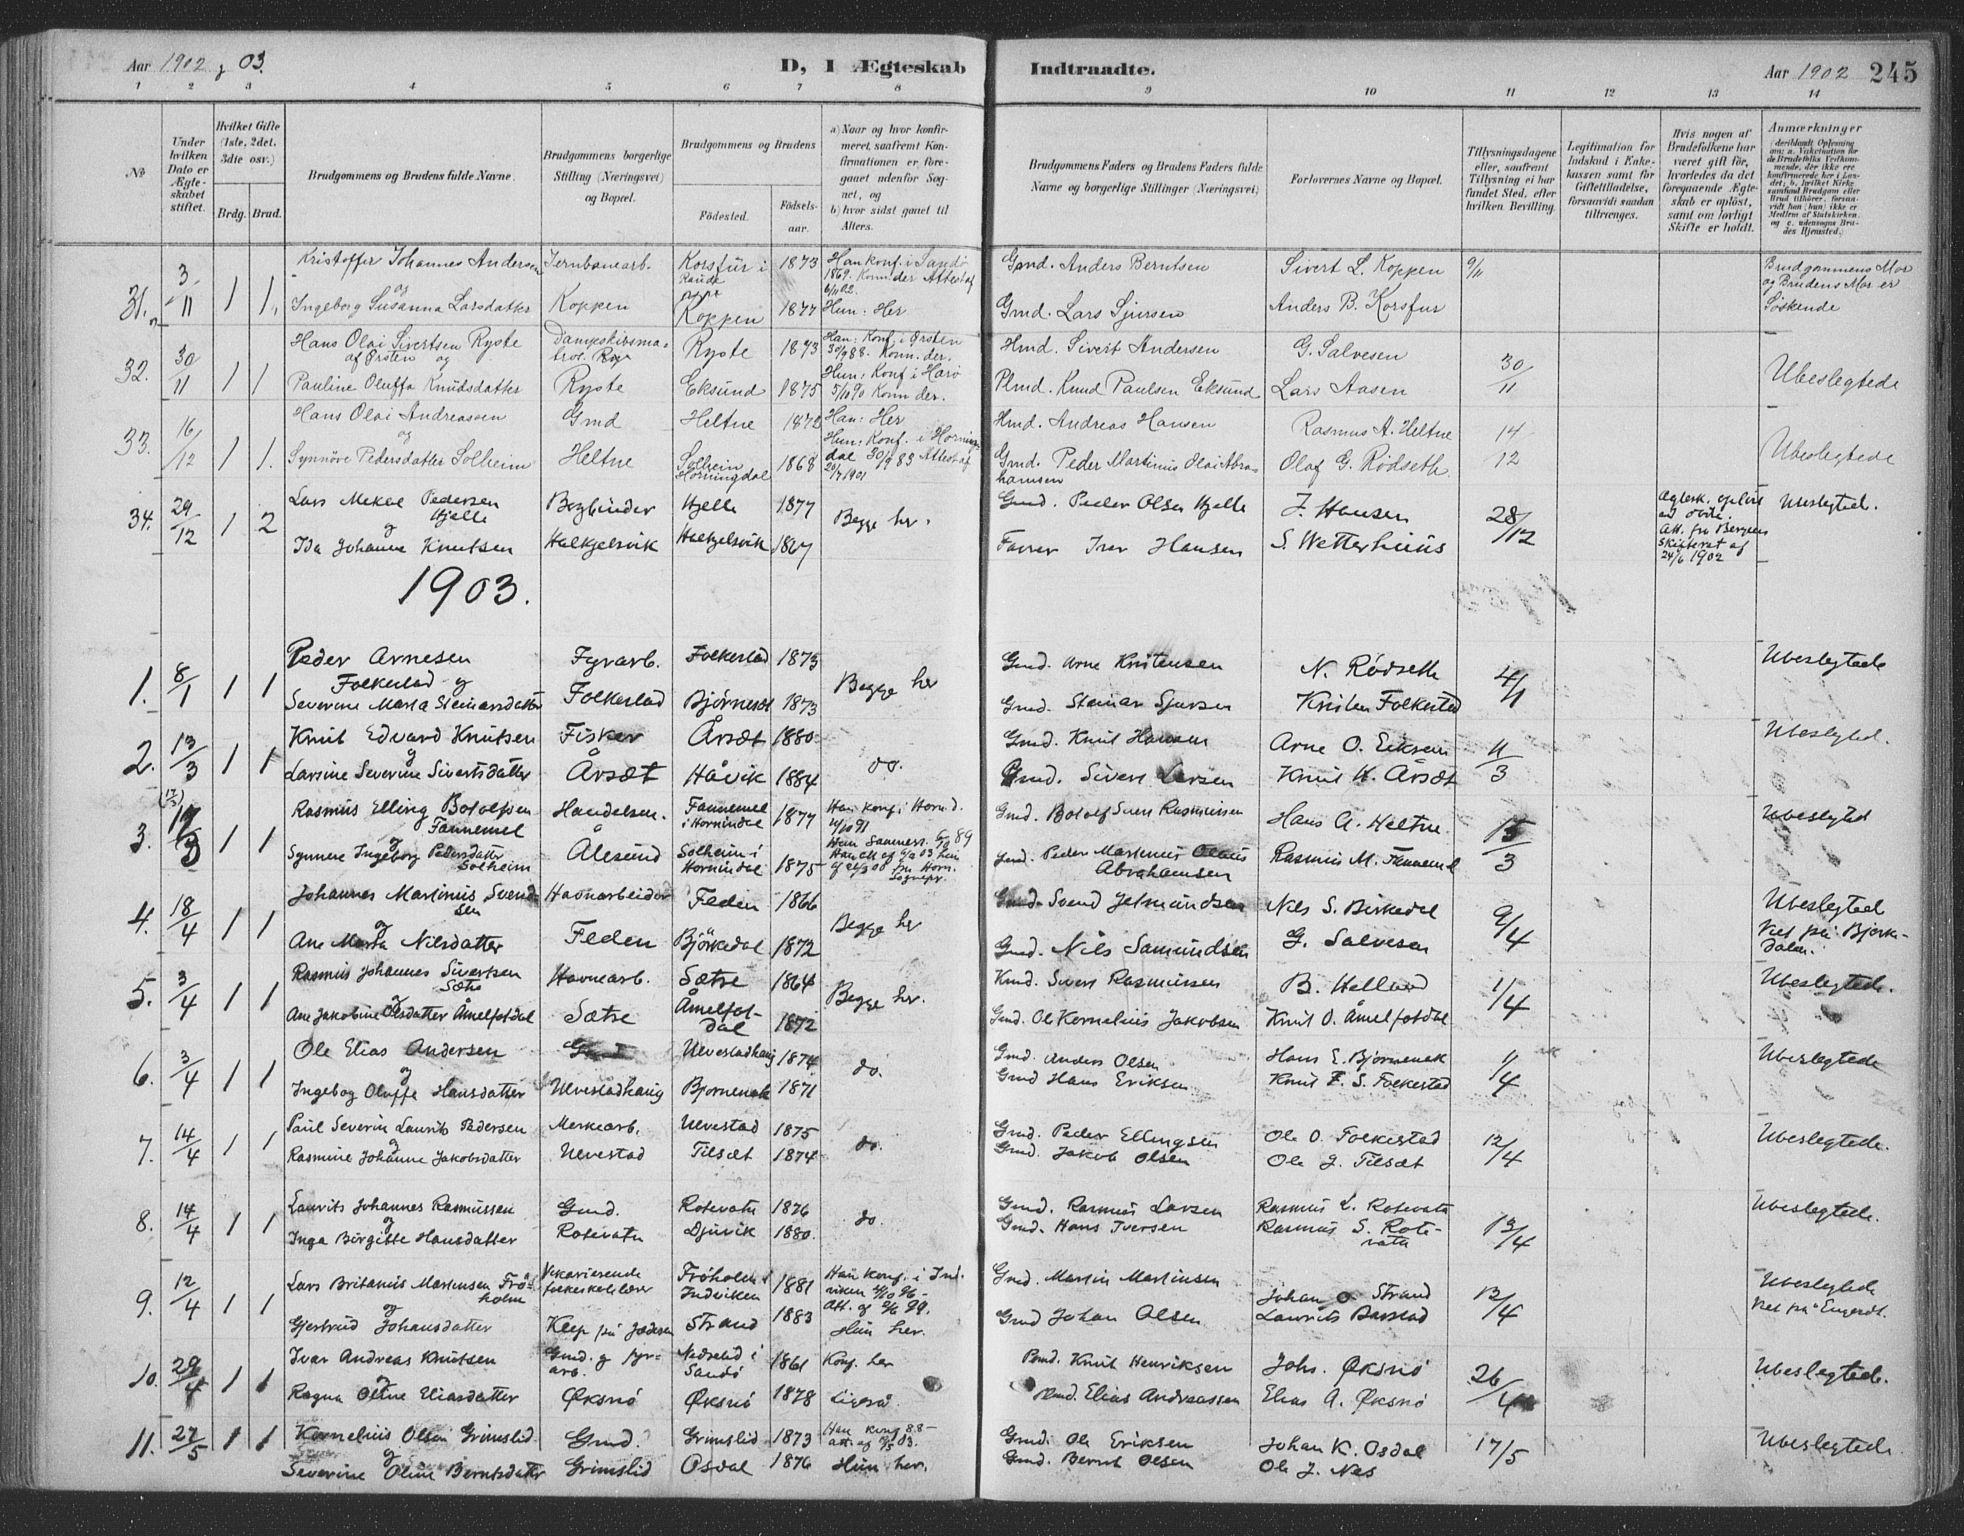 Aar 1902 g 03.
D, I Ægteskab Indtraadte.
Aar 1902 245
1 2 3 4 5 6 7 8 9 10 11 12 13 14
No
Under hvilken Dato er Ægteskabet stiftet.
Hvilket Gifte (1ste, 2det, 3die osv.)
Brdg. Brud.
Brudgommens og Brudens fulde Navne.
Brudgommens borgerlige Stilling (Næringsvei) og Bopæl.
Brudgommens og Brudens
Födested. Födselsaar.
a) Naar og hvor konfirmeret, saafremt Konfirmationen er foregaaet udenfor Sognet, og
b) hvor sidst gaaet til Alters.
Brudgommens Faders og Brudens Faders fulde Navne og borgerlige Stillinger (Næringsvei)
Forlovernes Navne og Bopæl.
Tillysningsdagene eller, saafremt Tillysning ei har fundet Sted, efter hvilken Bevilling.
Legitimation for Indskud i Enkekassen samt for Giftetilladelse, forsaavidt saadan tiltrænges.
Hvis nogen af Brudefolkene har været gift för, hvorledes da det foregaaende Ægteskab er oplöst, samt om lovligt Skifte er holdt.
Anmærkninger
31. 3/11 1 1. Kristoffer Johannes Andersen Jernbanearb. Korsfur i 1873 Han konf. i Sandö Gmd. Anders Berntsen Sivert L. Koppen 9/11 Brudgommens Mor
1869. Konn der Attest af og Brudens Mor er
og 6/11 02.
Ingeborg Susanna Larsdatter Koppen Koppen 1877 Hun: Her Gmd. Lars Sjursen Anders B. Korsfur Søskende
32. 30/11 1 1 Hans Olai Sivertsen Ryste Dampskibsma- Ryste 1873 Han: Konf. i Ørsten Hmd. Sivert Andersen G. Salvesen 30/11 Ubeslegtede
af Ørsten og 30/9 88. Konn. der.
Pauline Oluffa Knudsdatter Ryste Eksund 1875 Hun: Konf. i Harö Plmd. Knud Paulsen Eksund Lars Aasen
5/10 90 Konn der.
33. 16/12 1 1. Hans Olai Andreassen Gmd Heltne 1872 Han: Her Hmd. Andreas Hansen Rasmus A. Heltne 14/12 Ubeslegtede
og Hun: Konf. i Hornin-
Synnöve Pedersdatter Solheim Heltne Solheim 1868 dal 30/9 83 Attest af Gmd. Peder Martinus Olai Abra- Olaf G. Rödseth
Horningdal 20/7 1901 hamsen
34. 29/12 1 2 Lars Mekal Pedersen Bogbinder Hjelle 1877 Begge her. Gmd. Peder Olsen Hjelle J. Hansen 28/12 Ægtesk. opløst Ubeslegted.
Hjelle
og Att. fra Bergens
Ida Johanne Knutsen Halkjelsvik Halkjelsvik 1867 Farver Iver Hansen S. Wetterhuus Skifteret af
24/6 1902
1903.
1. 8/1 1 1 Peder Arnesen Fyrarb. Folkestad 1873 Begge her Gmd. Arne Kristensen N. Rödseth 4/1 Ubeslegtede
Folkestad og
Severine Marta Steinarsdatter Folkestad Bjørneset 1873 Gmd. Steinar Sjursen Kristen Folkestad
2. 13/3 1 1 Knut Edvard Knutsen Fisker Årsæt 1880 do. Gmd. Knut Hansen Arne O. Eiksen 11/3 Ubeslegted.
og
Larsine Severine Sivertsdatter Årsæt Håvik 1884 Gmd. Sivert Larsen Knut K. Årsæt
3. 17/3 1 1 Rasmus Elling Botolfsen Handelsm. Fannemel 1877 Han konf. i Hornd. Gmd. Botolf Sven Rasmussen Hans A. Heltne 15/3 Ubeslegted
Fannemel i Hornindal 4/10 91
og
Synnøve Ingeborg Pedersdatter Ålesund Solheim i 1875 Gmd. Peder Martinus Olaus Rasmus M. Fannemel
Solheim Hornindal Abrahamsen
4. 18/4 1 1 Johannes Martinus Svend- Havnarbeider Feden 1866 Begge her Gmd. Svend Jetmundsen Nils S. Birkedal 9/4 Ubeslegted
sen
og Viet på Bjørke-
Ane Marta Nilsdatter Feden Björkedal 1872 Gmd. Nils Samundsen G. Salvesen dalen.
5. 3/4 1 1 Rasmus Johannes Sivertsen Havnearb. Sætre 1864 Begge her. Kmd. Sivert Rasmussen B. Helland 1/4 Ubeslegtede.
Sætre
og
Ane Jakobine Olsdatter Åmelfotdal Sætre Åmelfot- 1872 Gmd. Ole Kornelius Jakobsen Knut O. Åmelfotdal
dal
6. 3/4 1 1 Ole Elias Andersen Gmd Ulvestadhaug 1874 do. Gmd. Anders Olsen Hans E. Bjørnenak 1/4 Ubeslegtede
og
Ingeborg Oluffe Hansdatter Ulvestadhaug Bjørnenak 1871 Gmd Hans Eriksen Knut E. S. Folkestad
7. 14/4 1 1 Paul Severin Laurits Pedersen Merkearb. Ulvestad 1875 do. Gmd. Peder Ellingsen Ole O. Folkestad 12/4 Ubeslegtede.
og
Rasmine Johanne Jakobsdatter Ulvestad Tilsæt 1874 Gmd. Jakob Olsen Ole J. Tilsæt
8. 14/4 1 1 Laurits Johannes Rasmussen Gmd. Rotevatn 1876 do. Gmd. Rasmus Larsen Rasmus L. Rotevatn 13/4 Ubeslegtede.
og
Inga Birgitte Hansdatter Rotevatn Djuvik 1880. Gmd. Hans Iversen Rasmus S. Rote-
vatn
9. 12/4 1 1 Lars Britanus Martinsen Frö- Vikarierende Fröholm i 1881 Han konf. i Ind- Gmd. Martin Martinsen Johan O. Strand 12/4 Ubeslegtede
holm folkeskolelærer Indviken viken 4/10 96 - Viet på Engeset.
og Att. af 2/6 99.
Gjertrud Johansdatter Klep på Jæderen Strand 1883 Hun her. Gmd Johan Olsen Laurits Barstad
10. 29/4 1 1 Ivar Andreas Knutsen Gmd. og fyr- Nedrelid i 1861 Konf. her Pmd. Knut Henriksen Johs. Øksnö 26/4 Ubeslegtede.
arb. Sandö
og
Ragna Oline Eliasdatter Øksnö Øksnö 1878 Ligeså. Hmd. Elias Andreassen Elias A. Øksnö
11. 27/5 1 1 Kornelius Olsen Grimslid Gmd. Grimslid 1873 Han konf 88 - Gmd. Ole Eriksen Johan K. Osdal 17/5 Ubeslegtede.
og
Severine Oline Berntsdatter Grimslid Osdal 1876 Hun her. Gmd. Bernt Olsen Ole J. Nes